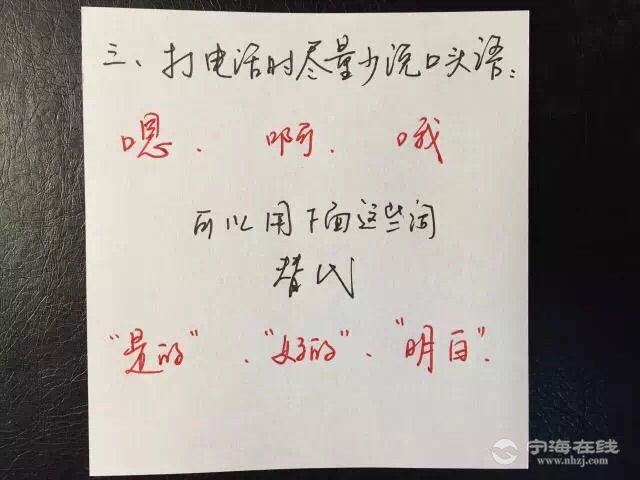 三、打电话时尽量少说口头语：
嗯、啊、哦
可以用下面这些词
替代
“是的”、“好的”、“明白”.
宁海在线
www.nhzj.com